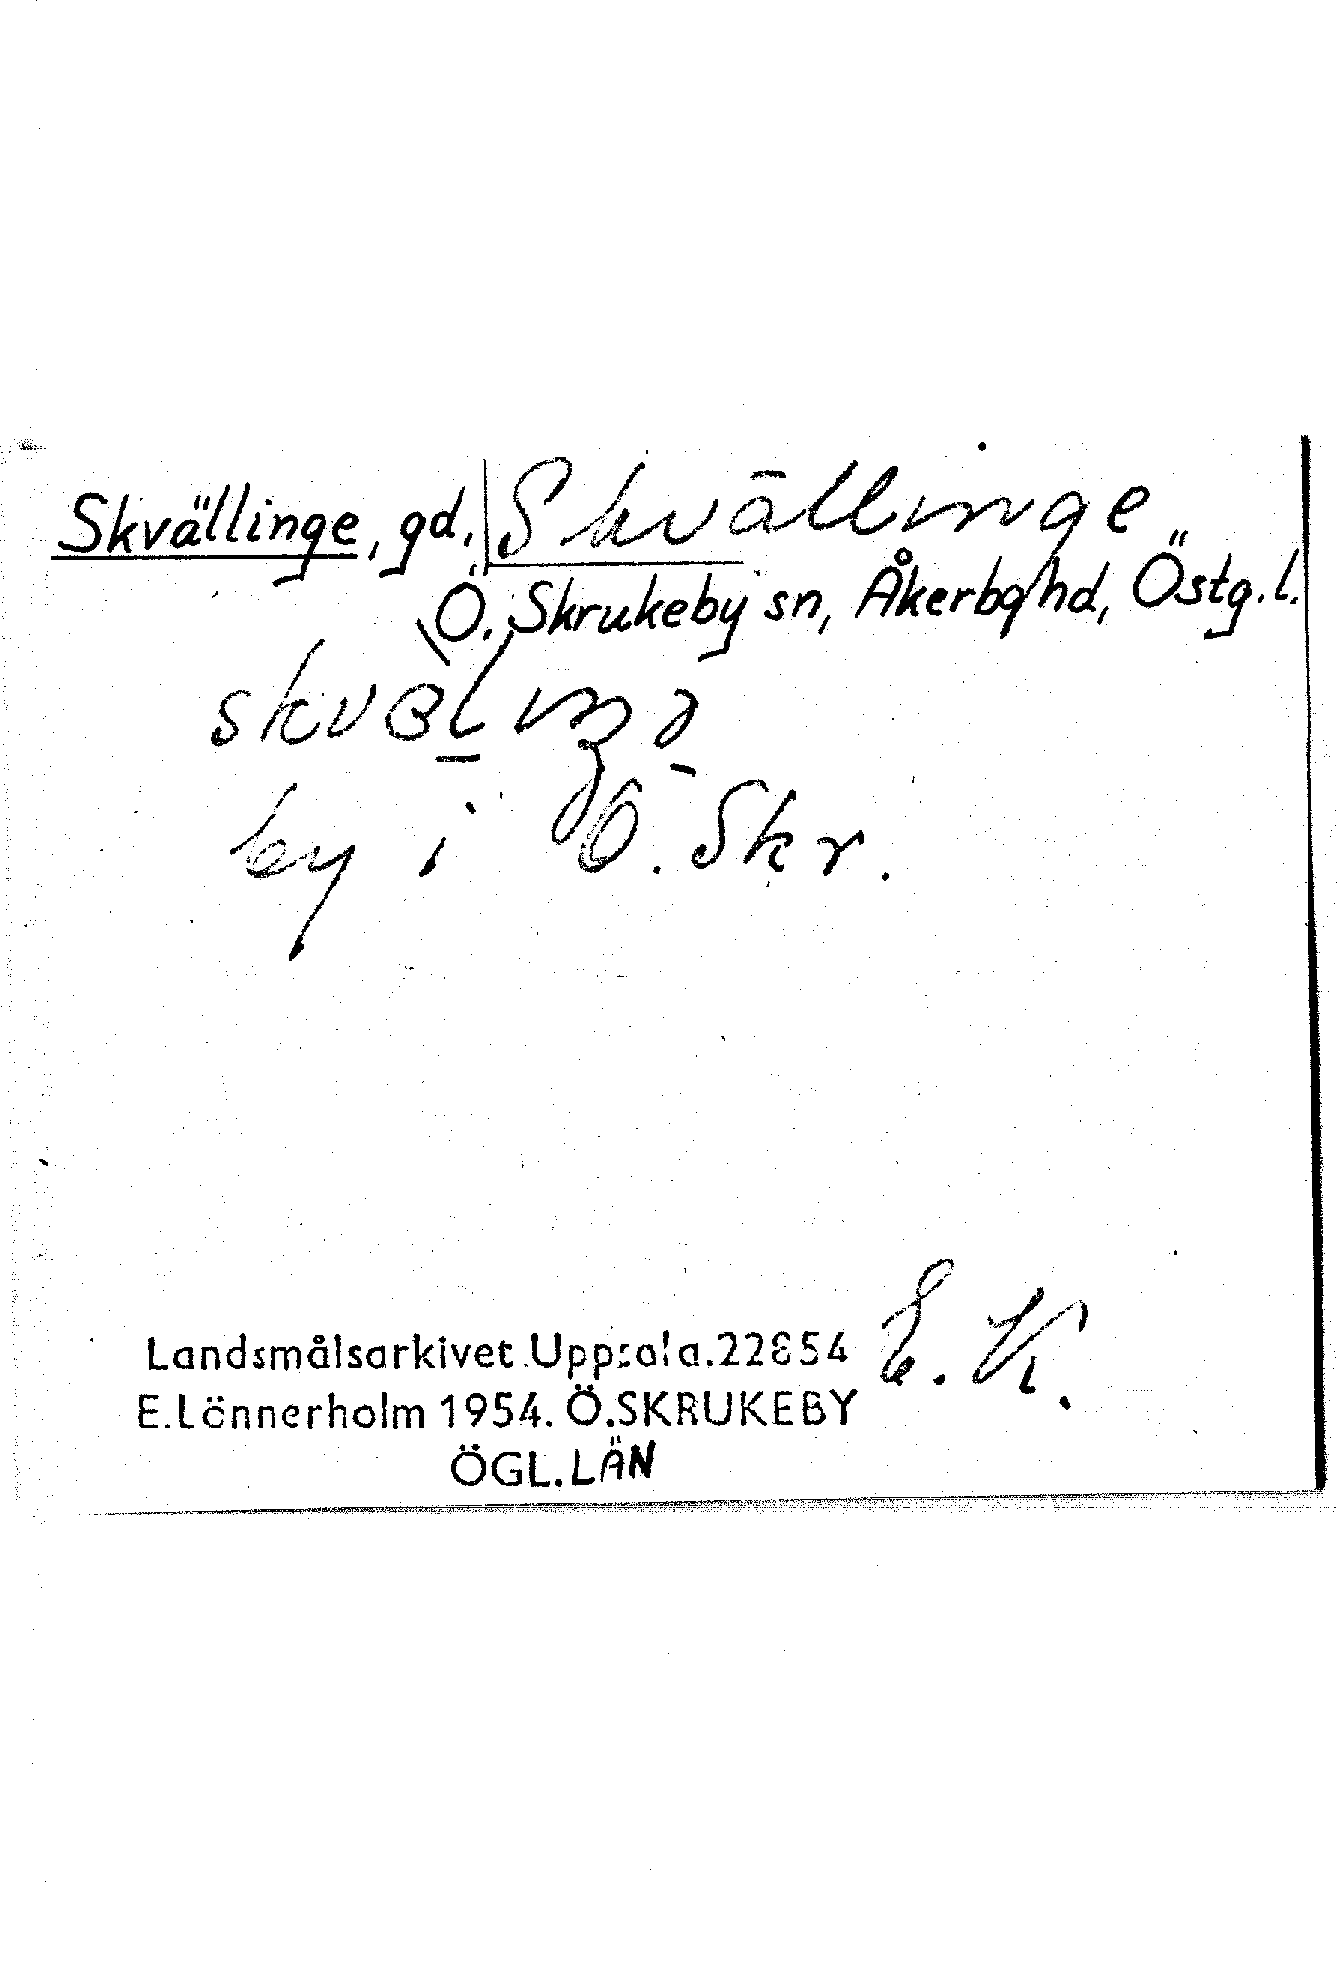 Skvällinge, gd. Skvällinge
Ö. Skrukeby sn, Åkerbo hd, Östg. l.
by i Ö. Skr.
E. K.
Landsmålsarkivet Uppsala. 22854
E. Lönnerholm 1954. Ö. SKRUKEBY
ÖGL. LÄN